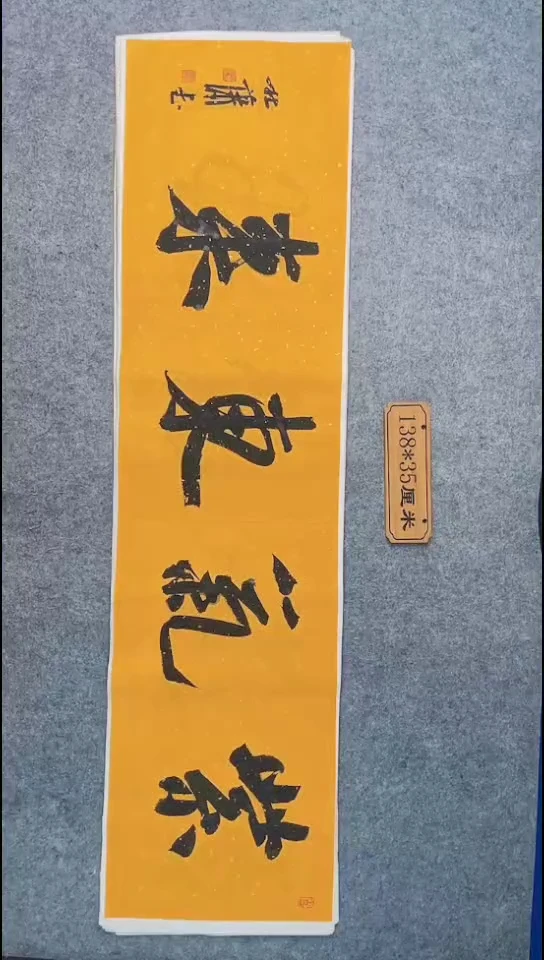 紫氣東來
138*35厘米